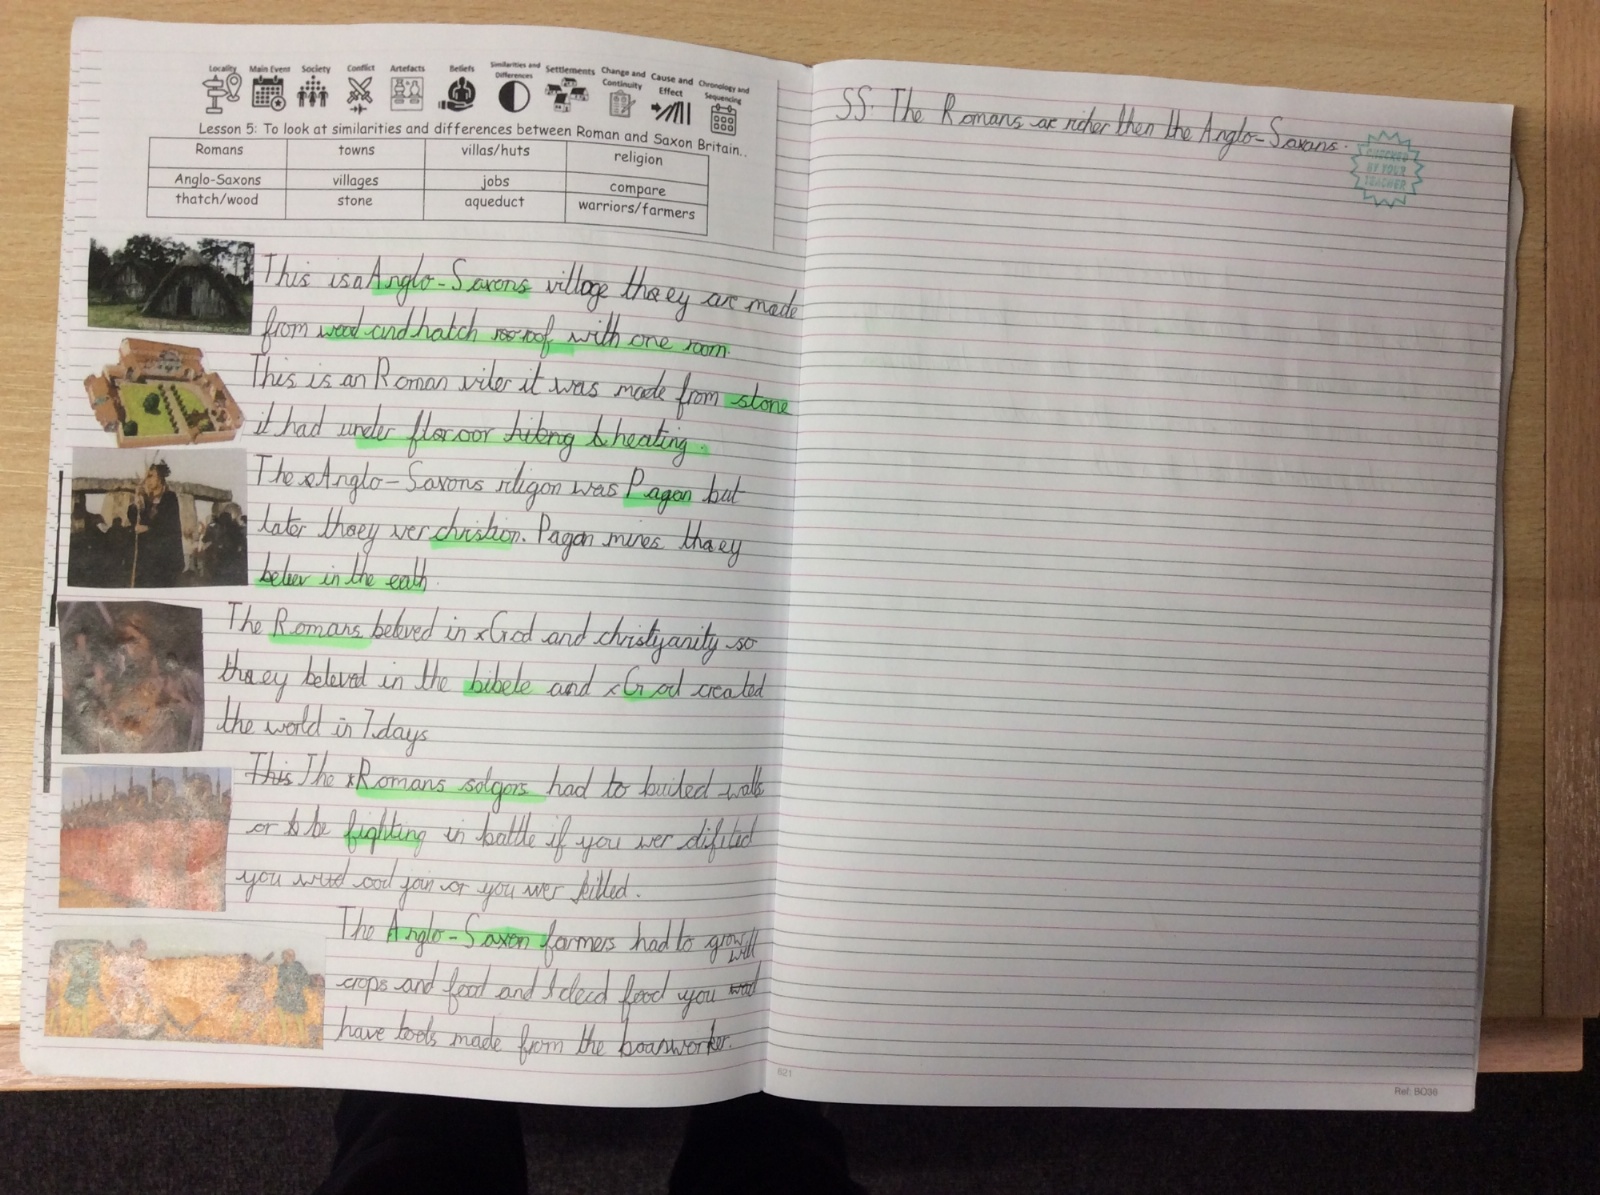 Locality Main Event Society Conflict Artefacts Beliefs Similarities and Differences Settlements Change and Continuity Cause and Effect Chronology and Sequencing
Lesson 5: To look at similarities and differences between Roman and Saxon Britain..
Romans towns villas/huts religion
Anglo-Saxons villages jobs compare
thatch/wood stone aqueduct warriors/farmers
This is a Anglo-Saxons village thaey are made
from wood and hatch roof with one room.
This is an Roman viler it was made from stone
it had under floroor heating.
The Anglo-Saxons religon was Pagan but
later thaey wer christion. Pagan mines thaey
beleev in the eath.
The Romans beleved in God and christyanity so
thaey beleved in the bibele and God created
the world in 7.days
This The Romans solgors had to builed walls
or be fighting in battle if you wer difited
you cod join or you wer killed.
The Anglo-Saxon farmers had to grow
will
crops and food and food you
have tools made from the boansworker.
SS: The Romans are richer then the Anglo-Saxons.
CHECKED
BY YOUR
TEACHER
621
Ref: BD36